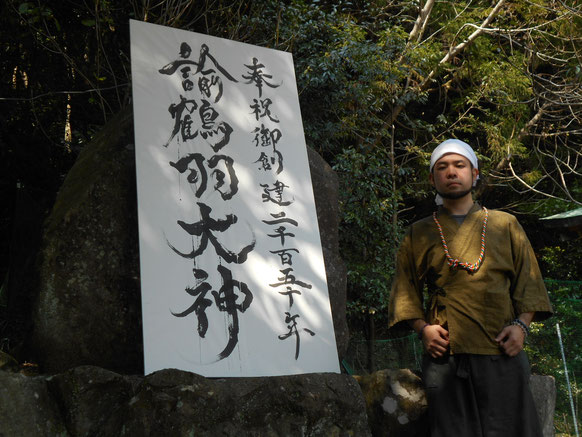 奉祝御創建二千百五十年
諭鶴羽大神